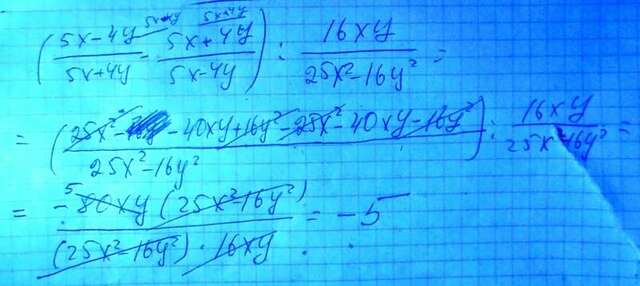 5x-4y 5x+4y 16xy
( ——— 5x-4y - ——— 5x+4y ) : ———————— =
5x+4y 5x-4y 25x²-16y²
= ( 25x² - 40xy + 16y² - 25x² - 40xy - 16y² ) : 16xy =
25x²-16y² 25x²-16y²
= -80xy (25x²-16y²) = -5
5
(25x²-16y²) · 16xy